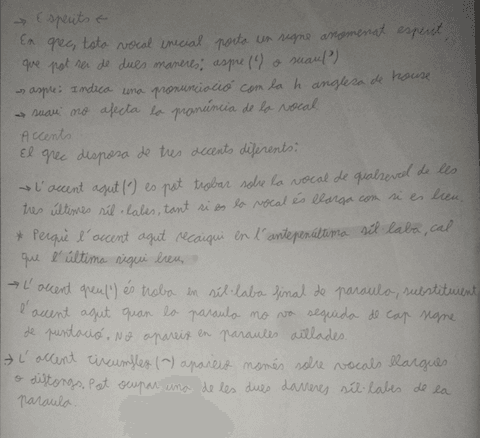 → Esperits ←
En grec, tota vocal inicial porta un signe anomenat esperit,
que pot ser de dues maneres: aspre (‘) o suau (’)
→ aspre: indica una pronunciació com la h anglesa de house
→ suau no afecta la pronúncia de la vocal
Accents
El grec disposa de tres accents diferents:
→ L'accent agut (´) es pot trobar sobre la vocal de qualsevol de les
tres últimes síl·labes, tant si la vocal és llarga com si és breu.
* Perquè l'accent agut recaigui en l'antepenúltima síl·laba, cal
que l'última sigui breu.
→ L'accent greu (`) és troba en síl·laba final de paraula, substituent
l'accent agut quan la paraula no va seguida de cap signe
de puntació. No apareix en paraules aïllades.
→ L'accent circumflex (~) apareix només sobre vocals llargues
o diftongs. Pot ocupar una de les dues darreres síl·labes de la
paraula.